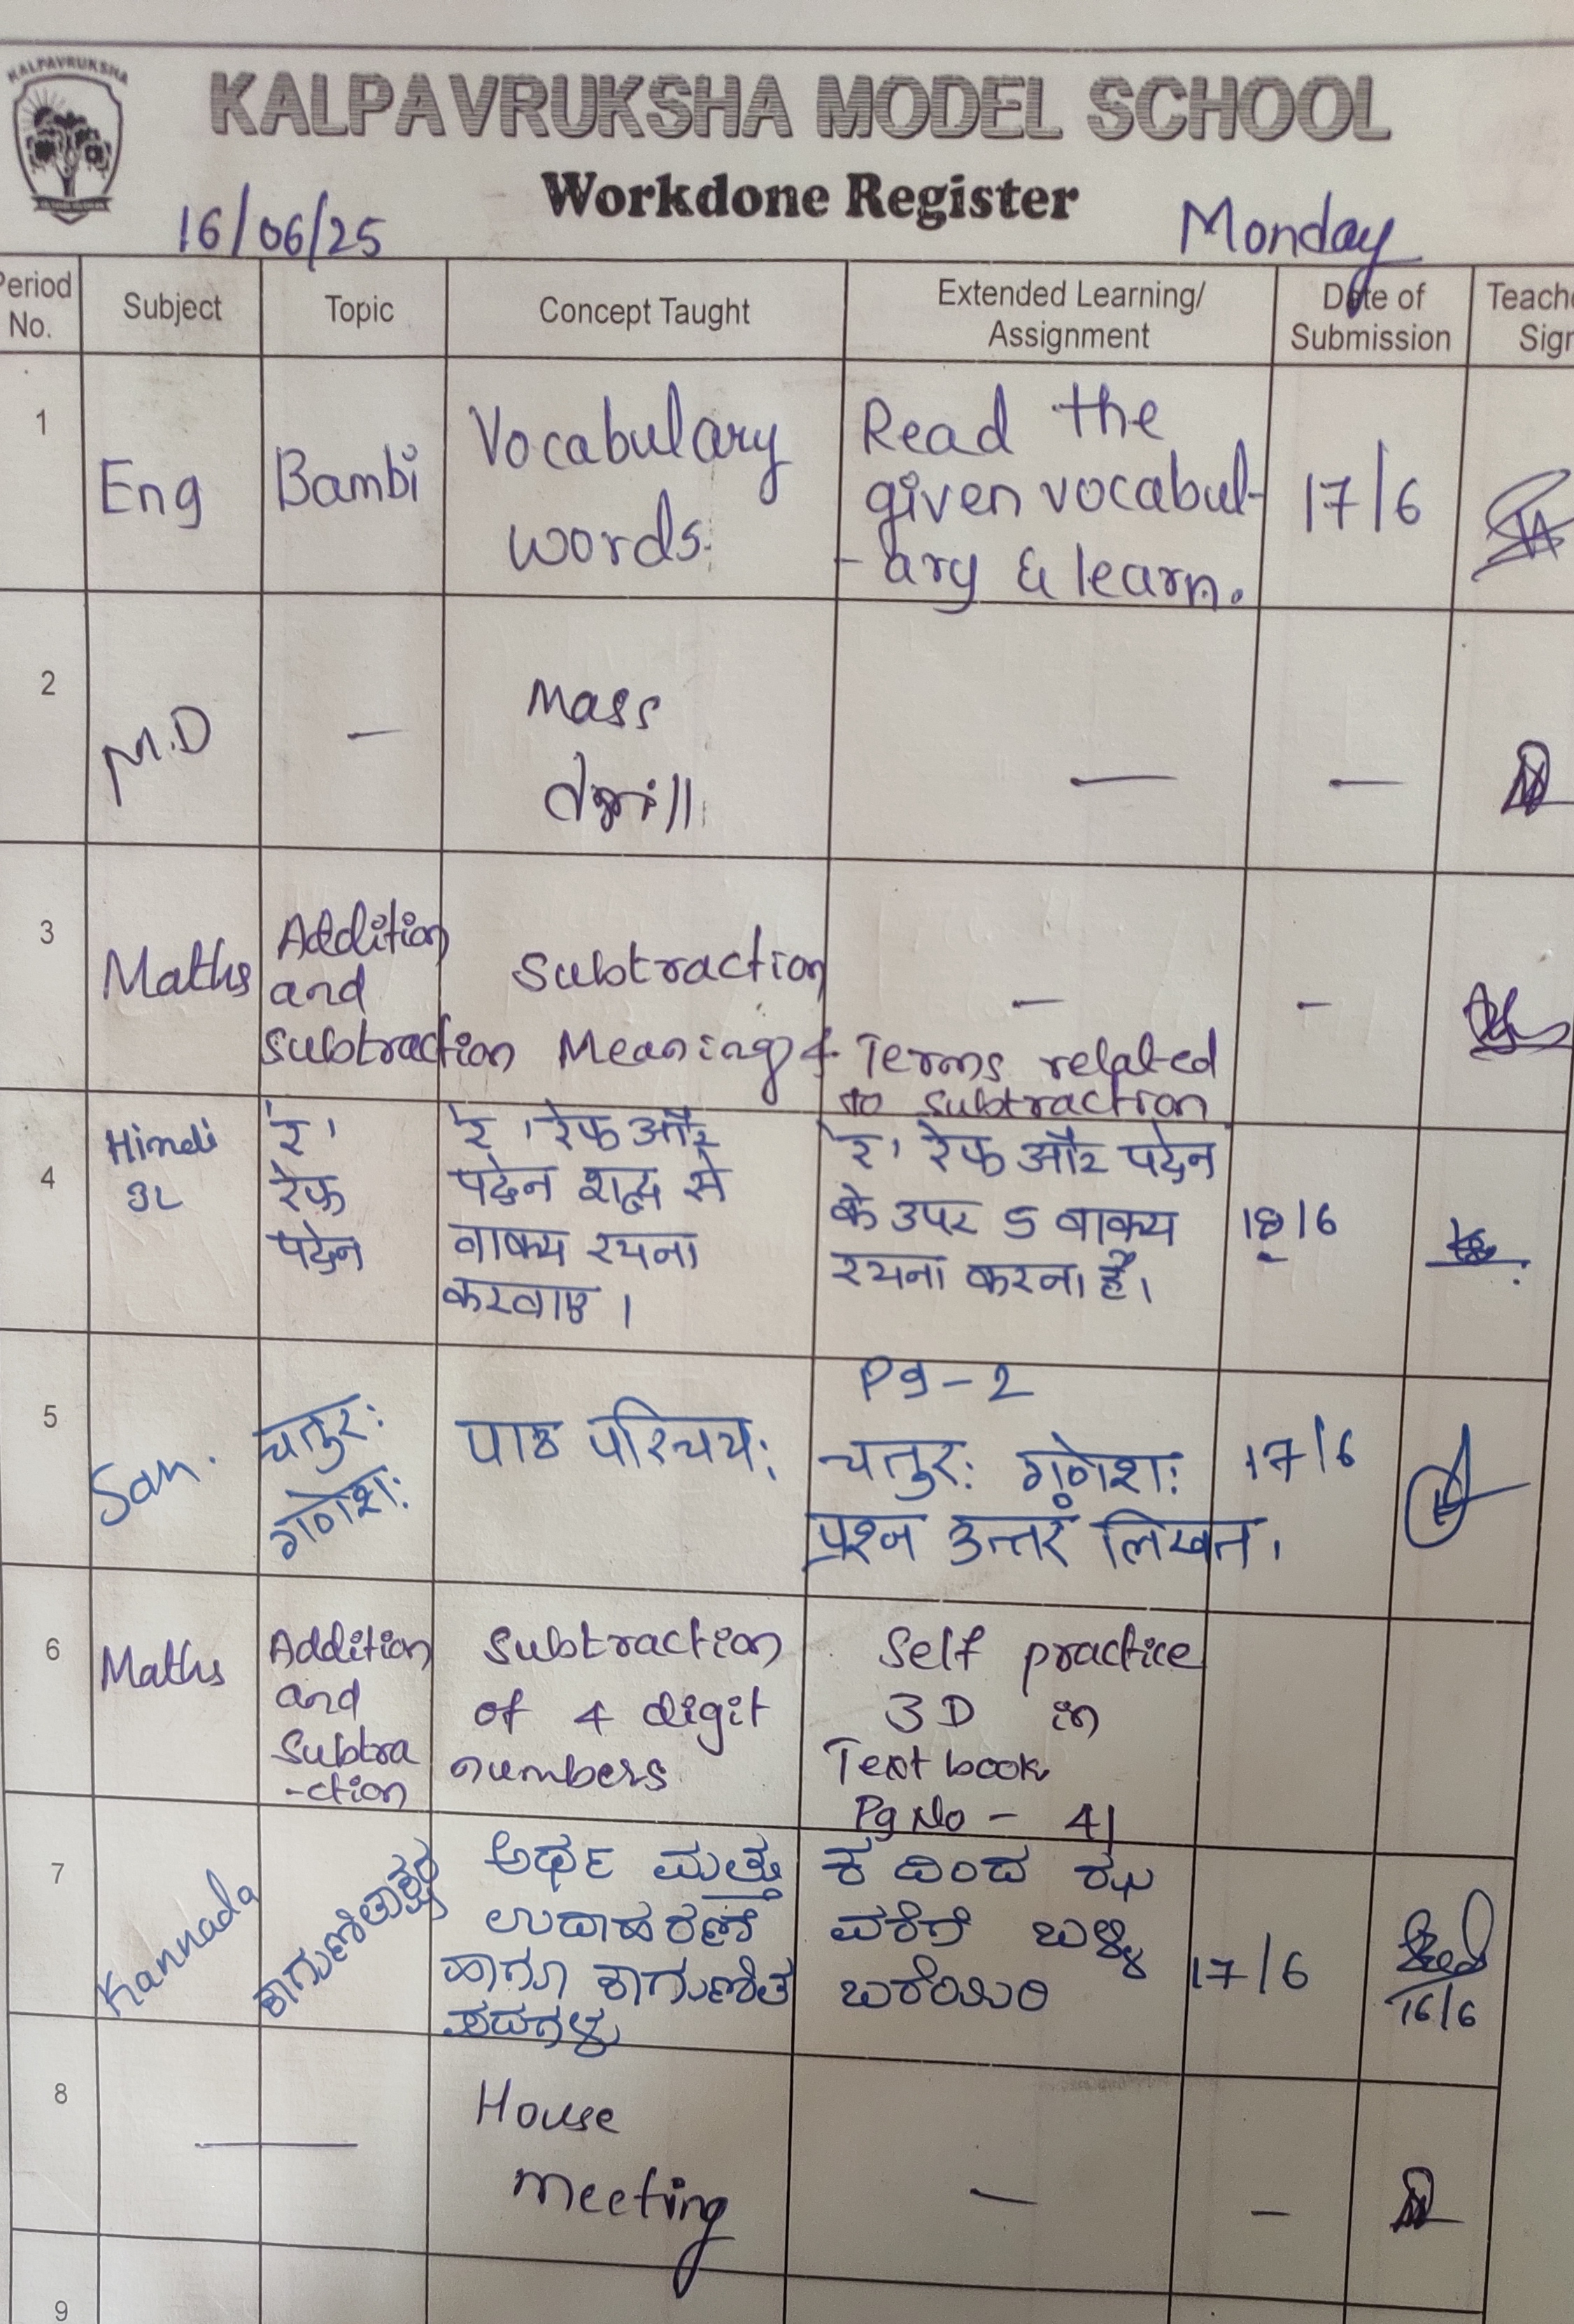 KALPAVRUKSHA
KALPAVRUKSHA MODEL SCHOOL
Workdone Register
16/06/25 Monday
Period No. Subject Topic Concept Taught Extended Learning/ Assignment Date of Submission Teach Sign
1 Eng Bambi Vocabulary words. Read the given vocabul- -ary & learn. 17/6
2 M.D — Mass drill — —
3 Maths Addition and Subtraction Subtraction Meaning & Terms related to subtraction — —
4 Hindi 3L 'र' रेफ पदेन 'र' रेफ और पदेन शब्द से वाक्य रचना करवाए। 'र' रेफ और पदेन के उपर 5 वाक्य रचना करना है। 18/6
5 San. चतुरः गणेशः पाठ परिचयः Pg-2 चतुरः गणेशः प्रश्न उत्तरं लिखत। 17/6
6 Maths Addition and Subtra -ction Subtraction of 4 digit numbers Self practice 3D in Text book Pg No - 41
7 Kannada ಅರ್ಥ ಮತ್ತು ಉದಾಹರಣೆ ಹಾಗೂ ಕಾಗುಣಿತ ಪದಗಳು ಕ ದಿಂದ ವರೆಗೆ ಬಳ್ಳಿ ಬರೆಯಿರಿ 17/6 16/6
8 — House meeting — —
9